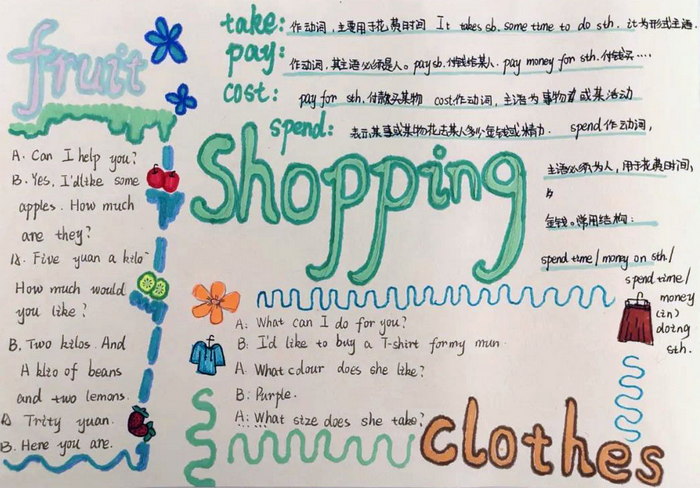 fruit
A. Can I help you?
B. Yes, I'dlike some
apples. How much
are they?
A. Five yuan a kilo
How much would
you like?
B. Two kilos. And
A klio of beans
and two lemons.
A Trity yuan.
B. Here you are.
take: 作动词,主要用于花费时间 It takes sb. some time to do sth. it为形式主语.
pay: 作动词,其主语必须是人。pay sb. 付钱给某人. pay money for sth. 付钱买····
cost: pay for sth. 付款买某物 cost作动词,主语为事物或某活动
spend: 表示某事或某物花去某人多少金钱或精力. spend作动词,
主语必须为人,用于花费时间,
金钱。常用结构:
spend time/money on sth./
spend time/
money
(in)
doing
sth.
Shopping
A: What can I do for you?
B: I'd like to buy a T-shirt for my mun.
A. What colour does she like?
B: Purple.
A: What size does she take?
clothes